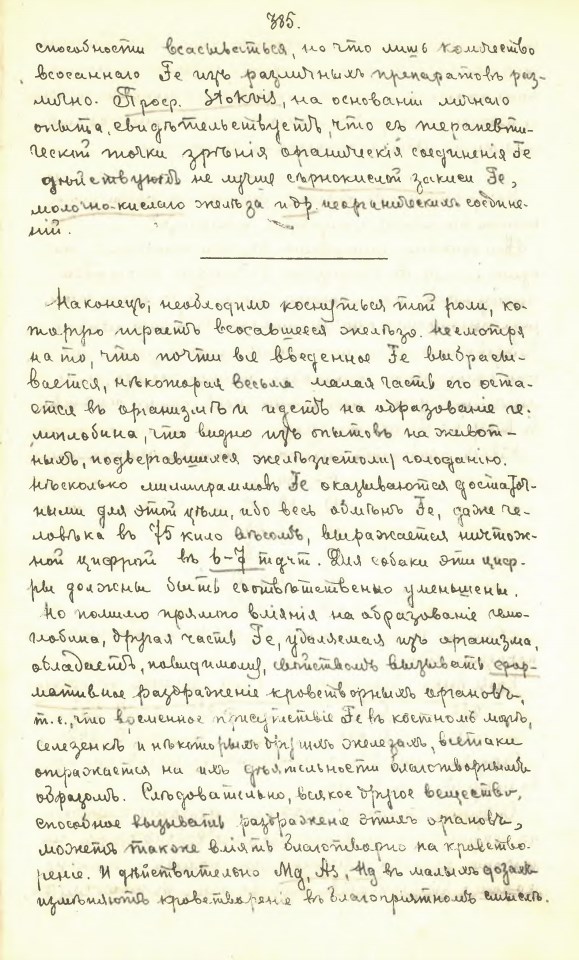 335.
способности всасываться, но что лишь количество
всосаннаго Fe изъ различныхъ препаратовъ раз-
лично. Проф. Stokvis, на основаніи личнаго
опыта, свидѣтельствуетъ, что съ терапевти-
ческой точки зрѣнія органическія соединенія Fe
дѣйствуютъ не лучше сѣрнокислой закиси Fe,
молочно-кислаго желѣза и др. неорганическихъ соедине-
ній.
Наконецъ, необходимо коснуться той роли, ко-
торую играетъ всосавшееся желѣзо. Несмотря
на то, что почти все введенное Fe выбрасы-
вается, нѣкоторая весьма малая часть его оста-
ется въ организмѣ и идетъ на образованіе ге-
моглобина, что видно изъ опытовъ на живот-
ныхъ, подвергавшихся желѣзистому голоданію.
Нѣсколько миллиграммовъ Fe оказываются достаточ-
ными для этой цѣли, ибо весь обмѣнъ Fe, даже че-
ловѣка въ 75 кило вѣсомъ, выражается ничтож-
ной цифрой въ 6-7 mgm. Для собаки эти циф-
ры должны быть соотвѣтственно уменьшены.
Но помимо прямого вліянія на образованіе гемо-
глобина, другая часть Fe, удаляемая изъ организма,
обладаетъ, повидимому, свойствомъ вызывать фор-
мативное раздраженіе кроветворныхъ органовъ,
т. е., что временное присутствіе Fe въ костномъ мозгѣ,
селезенкѣ и нѣкоторыхъ другихъ железахъ, всетаки
отражается на ихъ дѣятельности благотворнымъ
образомъ. Слѣдовательно, всякое другое вещество,
способное вызывать раздраженіе этихъ органовъ,
можетъ также вліять благотворно на кроветво-
реніе. И дѣйствительно Mg, As, Hg въ малыхъ дозахъ
измѣняютъ кроветвореніе въ благопріятномъ смыслѣ.